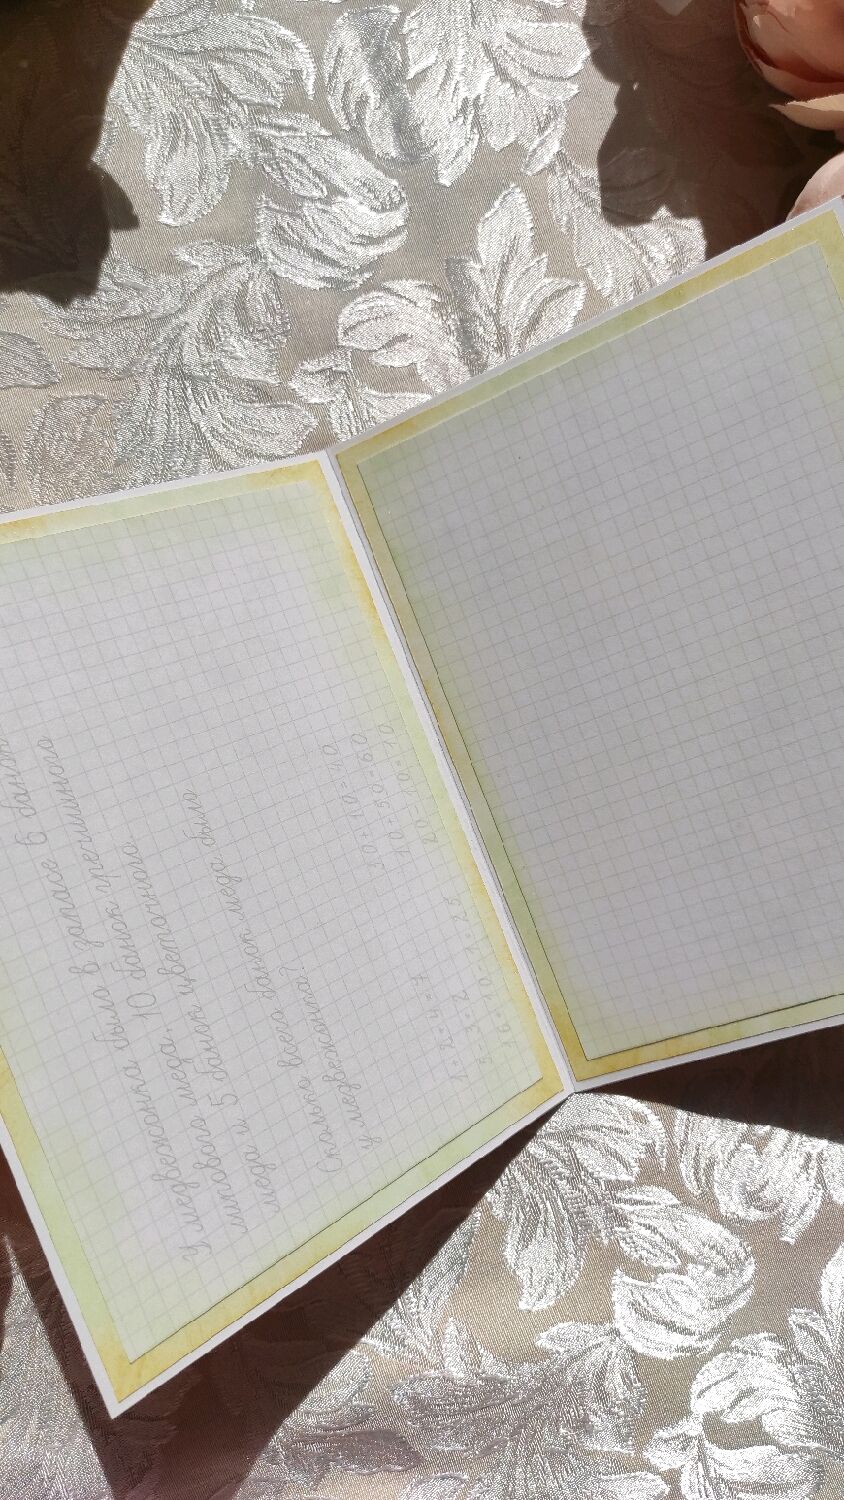 У медвежонка было в запасе 6 банок
липового меда, 10 банок гречишного
меда и 5 банок цветочного.
Сколько всего банок меда было
у медвежонка?
1+2+4=7
5-3=2
16+10-1=25
30+10=40
10+50=60
20-10=10